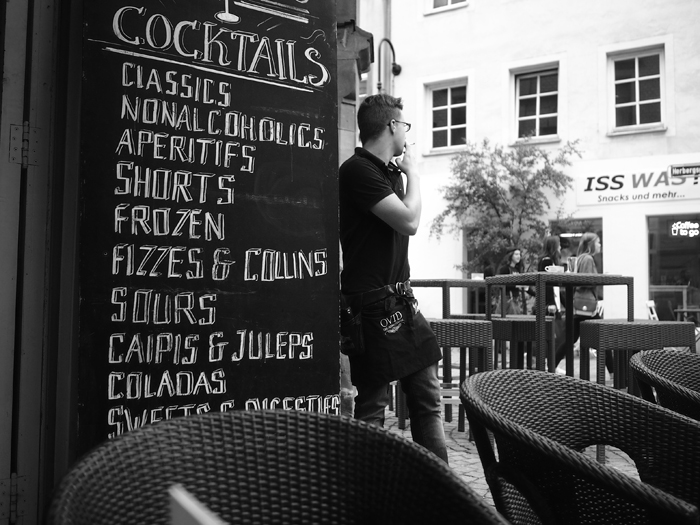 COCKTAILS
CLASSICS
NONALCOHOLICS
APERITIFS
SHORTS
FROZEN
FIZZES & COLLINS
SOURS
CAIPIS & JULEPS
COLADAS
SWEETS & DIGESTIFS
OVID
ISS WAS?
Snacks und mehr...
Coffee
to go